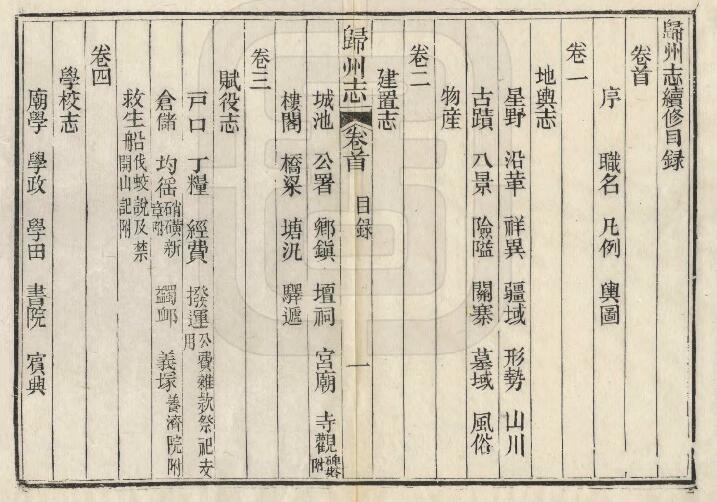 歸州志續修目録
卷首
序 職名 凡例 輿圖
卷一
地輿志
星野 沿革 祥異 疆域 形勢 山川
古蹟 八景 險隘 關寨 墓域 風俗
物産
卷二
建置志
歸州志 卷首 目録 一
城池 公署 鄉鎭 壇祠 宮廟 寺觀碑塔附
樓閣 橋梁 塘汛 驛遞
卷三
賦役志
戸口 丁糧 經費 撥運公費雜款祭祀支用
倉儲 均徭硝磺新章附 蠲卹 義塚養濟院附
救生船伐蛟說及禁開山記附
卷四
學校志
廟學 學政 學田 書院 賓興